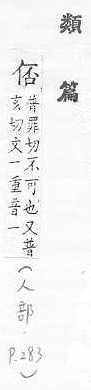 類篇
㕻
普罪切不可也又普
亥切文一重音一
(人部.
P.283)